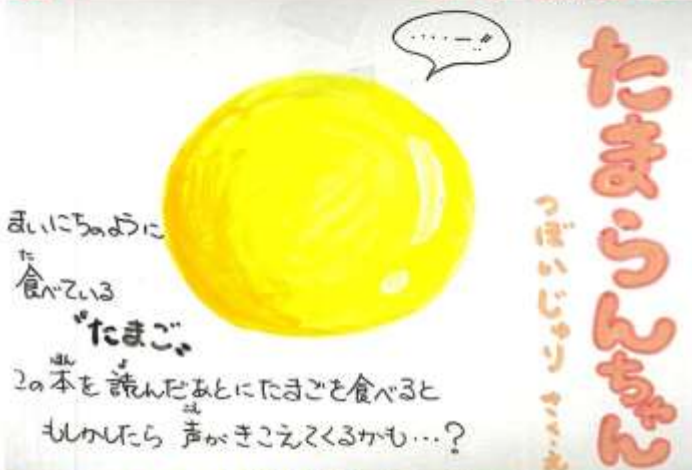 たまらんちゃん
つぼいじゅり さく・え
・・・・ー!!
まいにちのように
食べている
"たまご"
この本を読んだあとにたまごを食べると
もしかしたら 声がきこえてくるかも…?